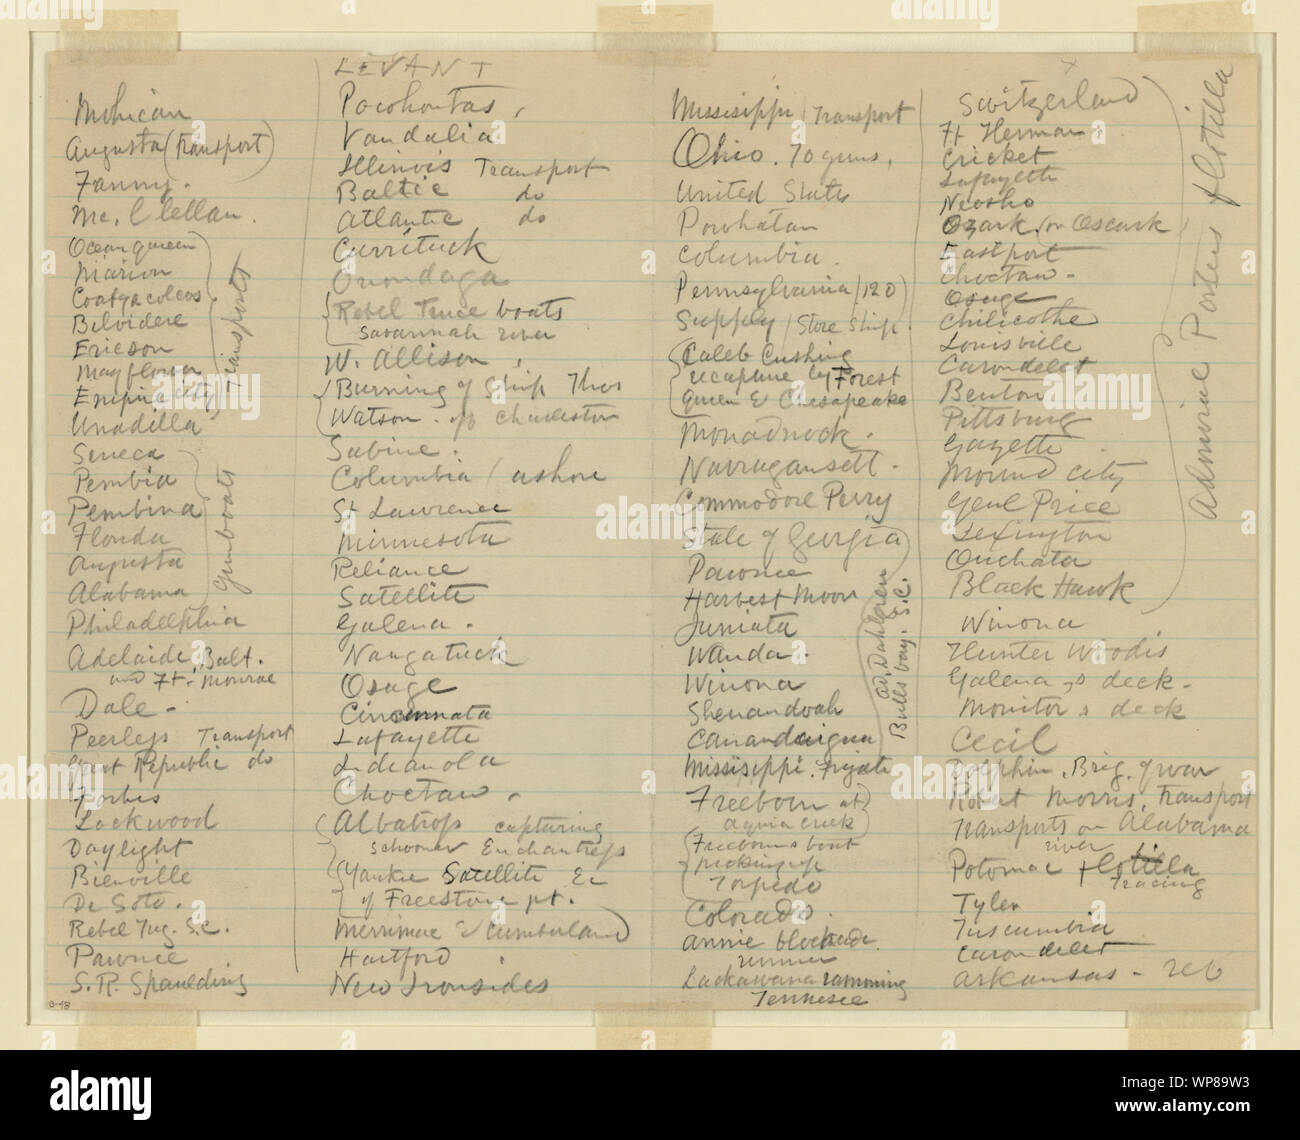 Mohican
Augusta (Transport)
Fanny.
Mc. Clellan.
Ocean queen
Marion
Coatzacoleos
Belvidere
Ericson
Mayflower
Empire city
Unadilla
Transports
Seneca
Pembia
Pembina
Florida
Augusta
Alabama
gunboats
Philadelphia
Adelaide, Balt.
and Ft. Monroe
Dale -
Peerless Transport
Great Republic do
Forbes
Lockwood
Daylight
Bienville
De Soto.
Rebel Tug. S.C.
Pawnee
S. R. Spaulding
8-48
LEVANT
Pocohontas,
Vandalia
Illinois Transport
Baltic do
Atlantic do
Currituck
Onondaga
Rebel Truce boats
Savannah river
W. Allison,
Burning of Ship Thos
Watson - off Charleston
Sabine.
Columbia / ashore
St Lawrence
Minnesota
Reliance
Satellite
Galena.
Naugatuck
Osage
Cincinnata
Lafayette
Indeanola
Choctaw.
Albatross capturing
schooner Enchantress
Yankee Satellite &c
of Freestone pt.
Merrimac & Cumberland
Hartford.
New Ironsides
Missisippi / Transport
Ohio. 70 guns.
United States
Powhatan
Columbia.
Pennsylvania (120)
Supply / Store Ship.
Caleb Cushing
recapture by Forest
Queen & Chesapeake
Monadnock.
Narragansett.
Commodore Perry
State of Georgia
Pawnee
Harvest Moon
Juniata
Wanda.
Winona
Shenandoah
Canandaigua
ad. Dahlgren
Bulls bay. S.C.
Missisippi. Frigate
Freeborn at
aquia creek
Freeborns boat
picking up
Torpedo
Colorado.
Annie blockade
runner
Lackawana ramming
Tennesee
x
Switzerland
Ft Herman.
Cricket
Lafayette
Neosho
Ozark (or Oscark
Eastport
Choctaw.
Osage
Chilicothe
Louisville
Carondelet
Benton
Pittsburg
Gazette
Mound city
Genl Price
Lexington
Ouchata
Black Hawk
Admiral Porters flotilla
Winona
Hunter Woodis
Galena,s deck.
Monitor,s deck
Cecil
Dolphin, Brig. of war
Robert Morris, Transport
Transports on Alabama
river
Potomac flotilla
Tracing
Tyler
Tuscumbia
Carondelet
Arkansas - reb
a
alamy
alamy
Image ID: WP89W3
www.alamy.com